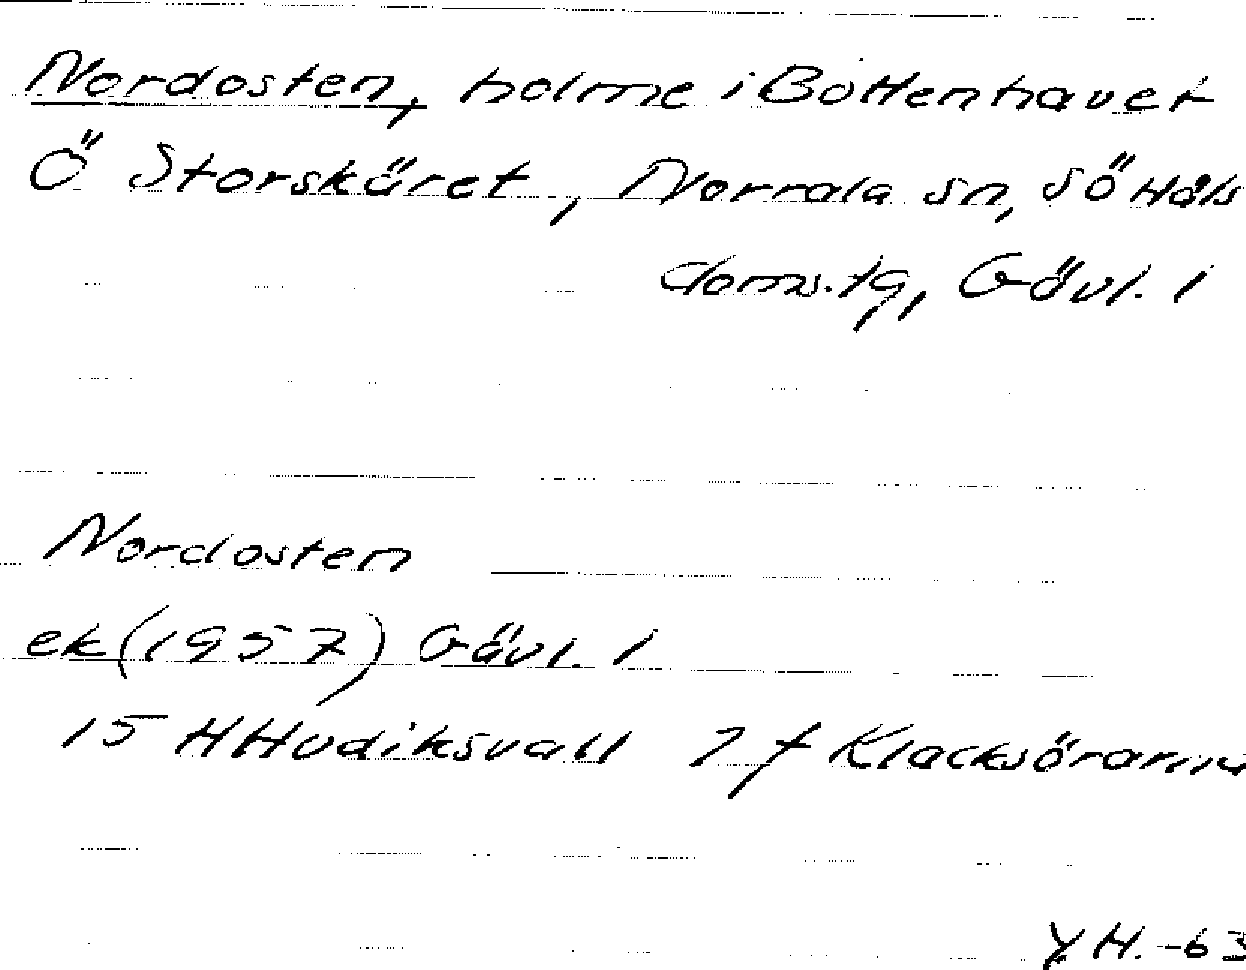 Nordosten, holme i Bottenhavet
Ö Storskäret, Norrala sn, SÖ Häls
doms.tg, Gävl. l
Nordosten
ek (1957) Gävl. l
15 H Hudiksvall 7 f Klacksörarna
Y.H. -63